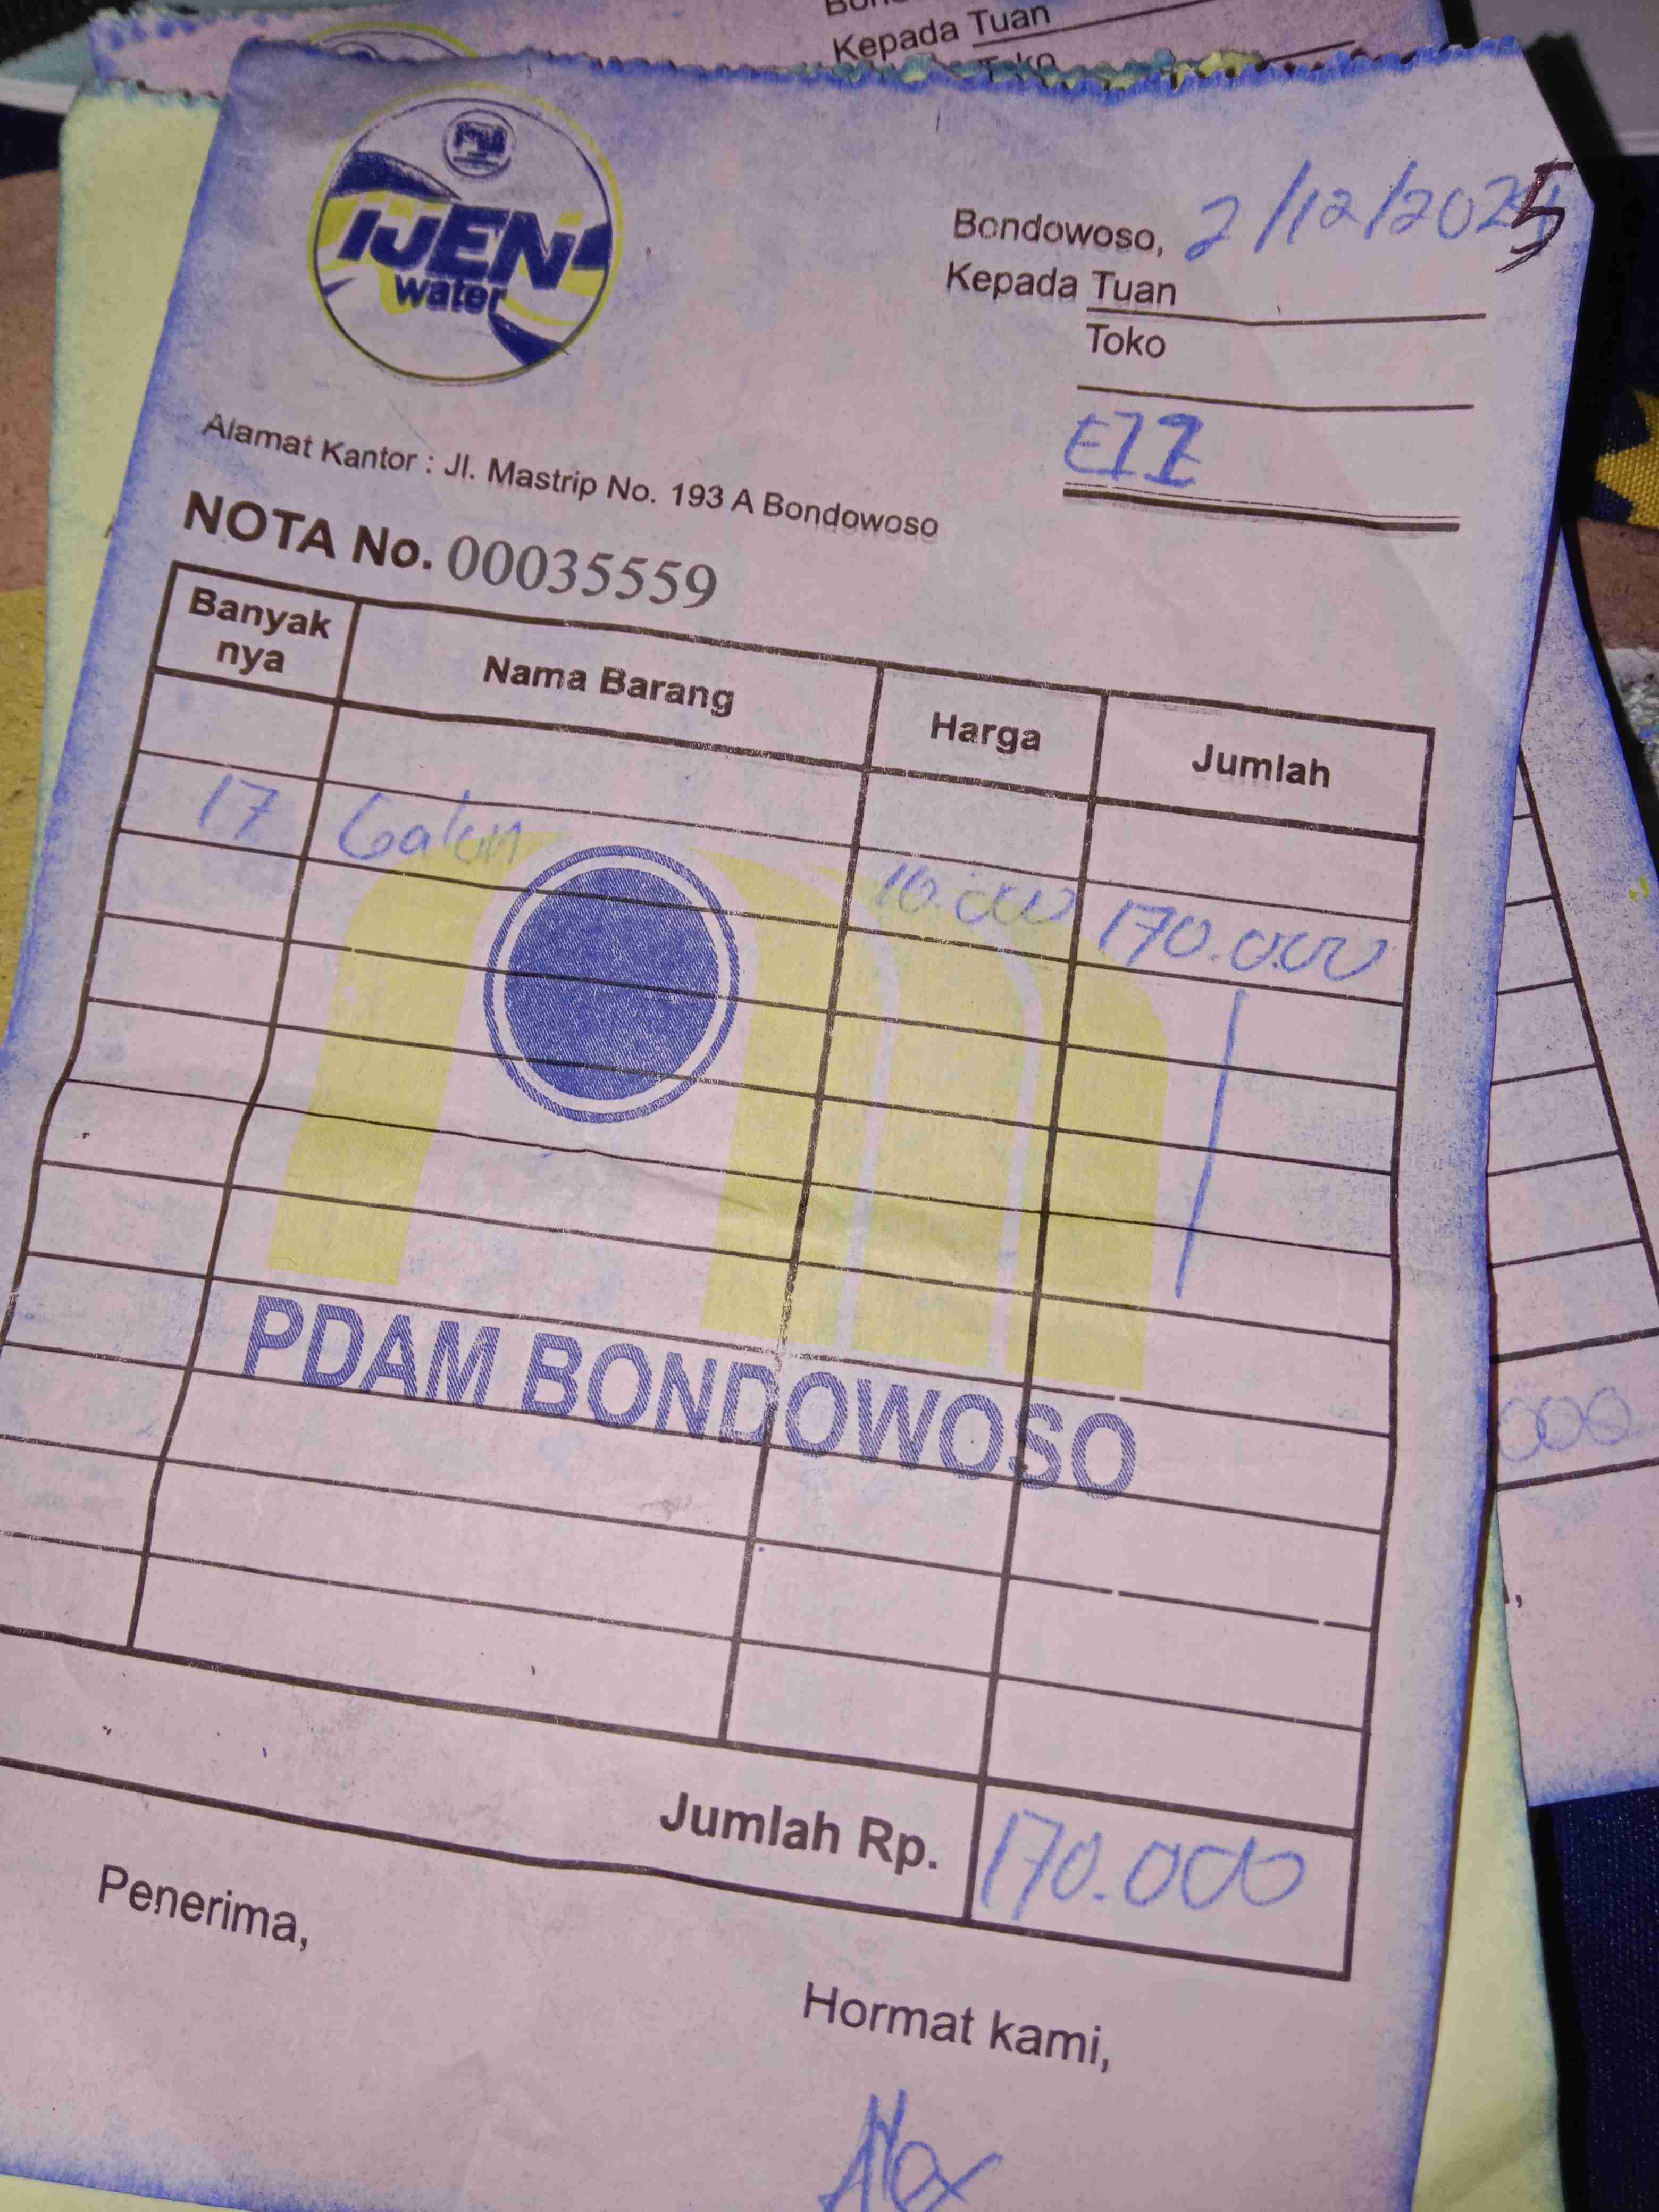 Kepada Tuan
Toko
IJEN
water
Bondowoso, 2/12/2025
Kepada Tuan
Toko
Alamat Kantor : Jl. Mastrip No. 193 A Bondowoso
NOTA No. 00035559
Banyak nya Nama Barang Harga Jumlah
17 Galon 10.000 170.000
PDAM BONDOWOSO
000
Jumlah Rp. 170.000
Penerima,
Hormat kami,
Alex